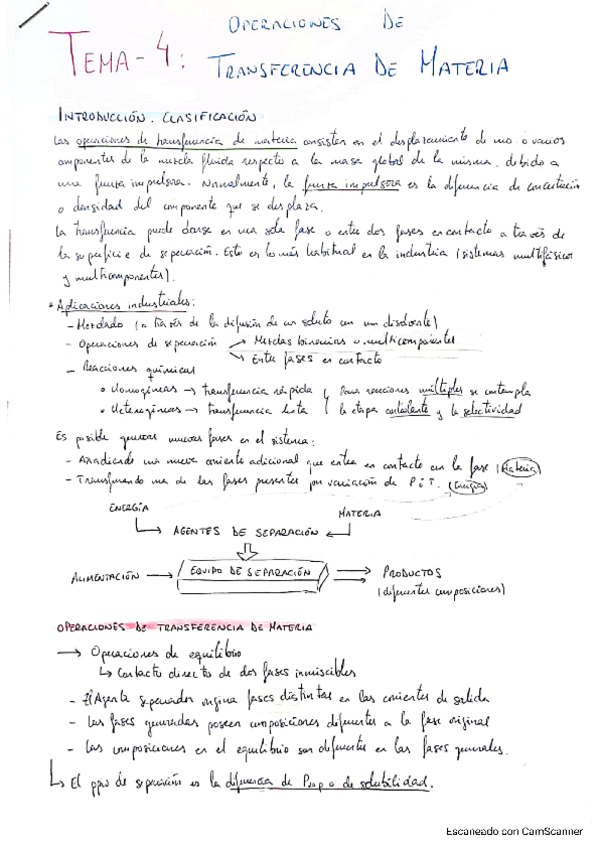 OPERACIONES DE
TEMA-4: TRANSFERENCIA DE MATERIA
INTRODUCCIÓN. CLASIFICACIÓN
Las operaciones de transferencia de materia consisten en el desplazamiento de uno o varios
componentes de la mezcla fluida respecto a la masa global de la misma, debido a
una fuerza impulsora. Normalmente, la fuerza impulsora es la diferencia de concentración
o densidad del componente que se desplaza.
La transferencia puede darse en una sola fase o entre dos fases en contacto a través de
la superficie de separación. Esto es lo más habitual en la industria (sistemas multifásicos
y multicomponentes).
• Aplicaciones industriales:
- Mezclado (a través de la difusión de un soluto con un disolvente)
- Operaciones de separación → Mezclas binarias o multicomponentes
→ Entre fases en contacto
- Reacciones químicas
• Homogéneas → transferencia rápida } Para reacciones múltiples se contempla
• Heterogéneas → transferencia lenta } la etapa controlante y la selectividad
Es posible generar nuevas fases en el sistema:
- Añadiendo una nueva corriente adicional que entra en contacto con la fase (Materia)
- Transformando una de las fases presentes por variación de P ó T. (Energía)
ENERGÍA MATERIA
AGENTES DE SEPARACIÓN
ALIMENTACIÓN → EQUIPO DE SEPARACIÓN → PRODUCTOS
(diferentes composiciones)
OPERACIONES DE TRANSFERENCIA DE MATERIA
→ Operaciones de equilibrio
↳ Contacto directo de dos fases inmiscibles
- El Agente separador origina fases distintas en las corrientes de salida
- Las fases generadas poseen composiciones diferentes a la fase original
- Las composiciones en el equilibrio son diferentes en las fases generales.
↳ El ppio de separación es la diferencia de Pvap o de solubilidad.
Escaneado con CamScanner